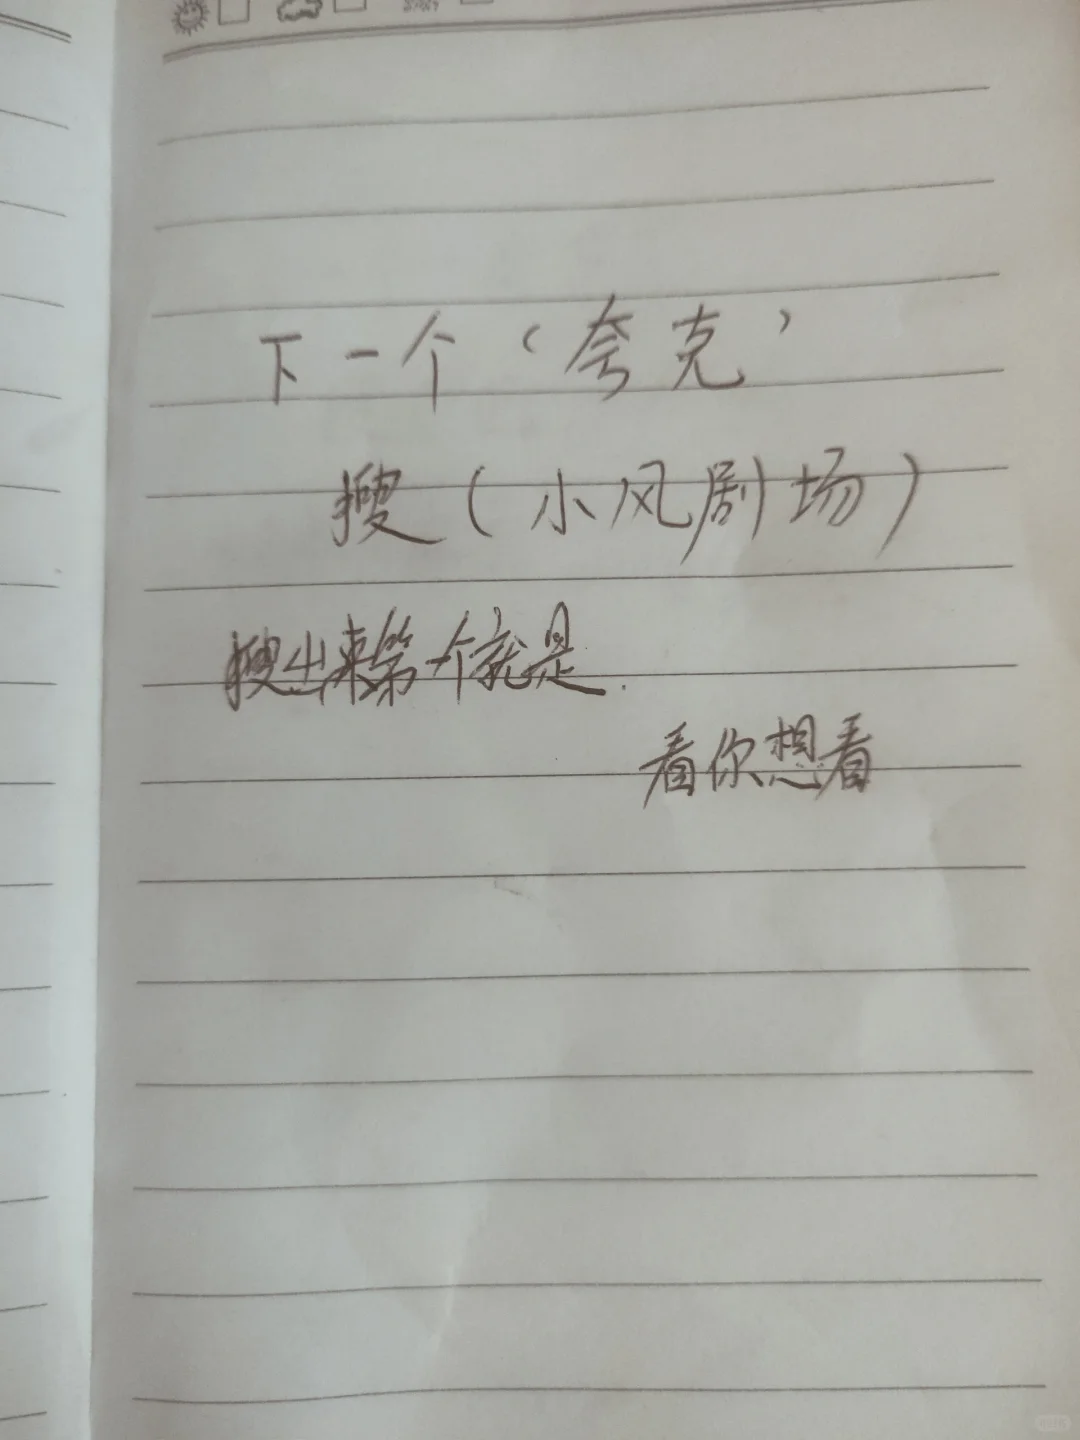 下一个‘夸克’
搜(小风剧场)
搜出来第一个就是.
看你想看